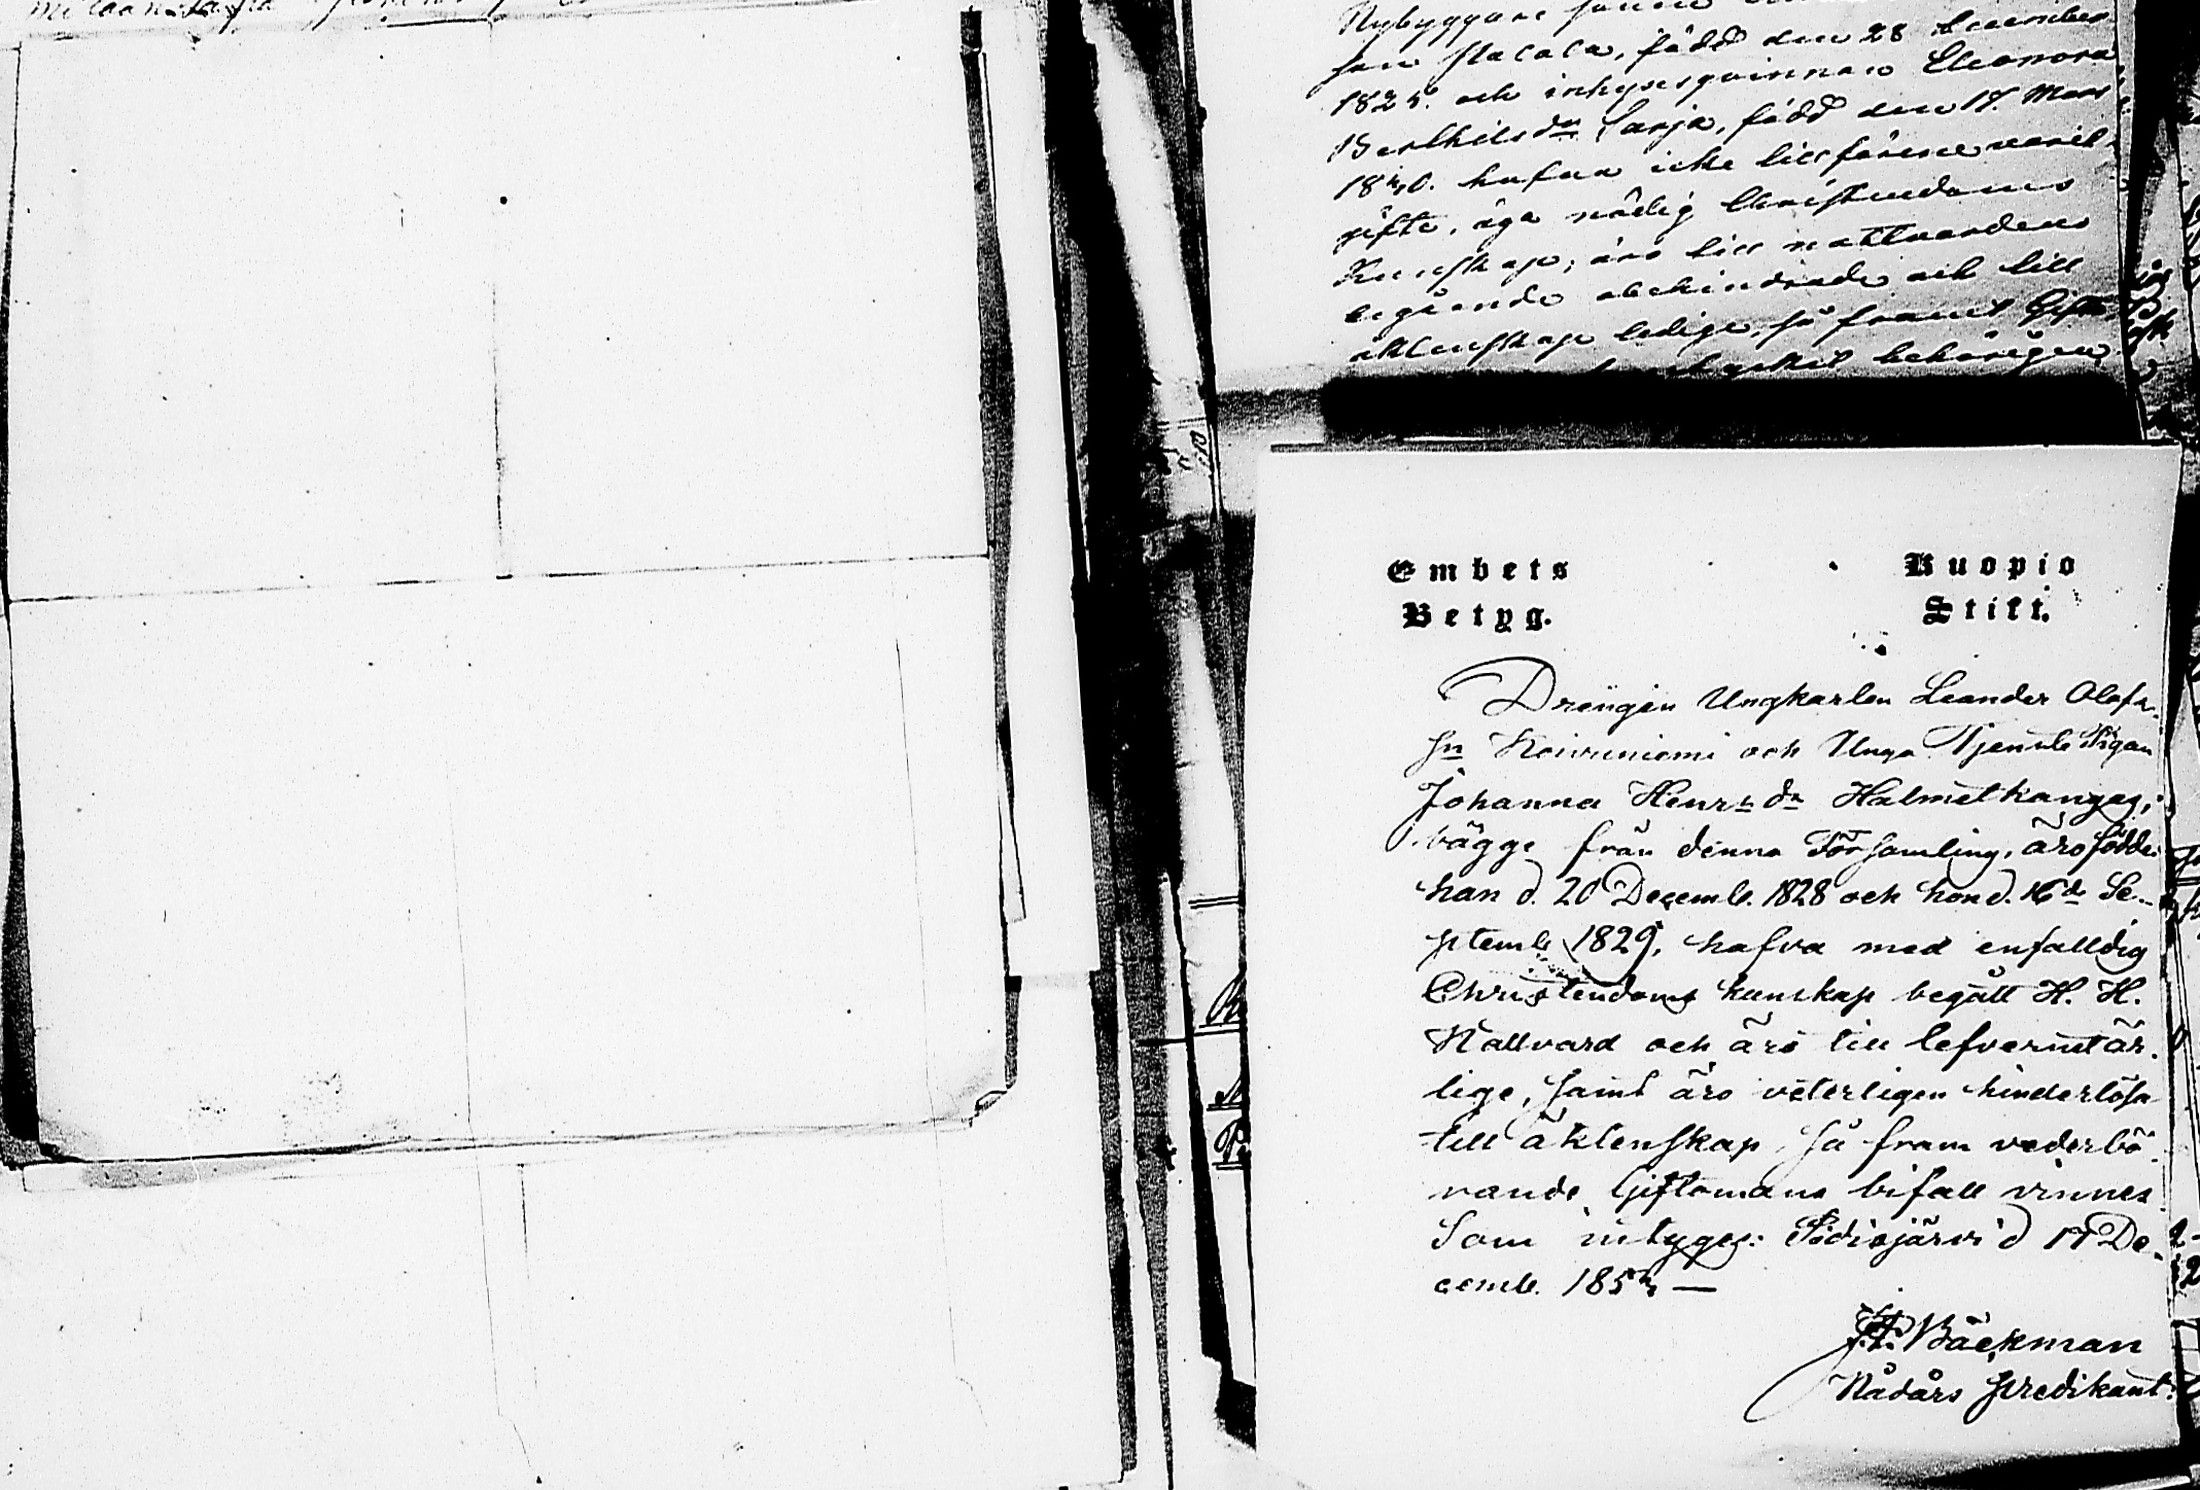 Nybyggare
son Halala, född den 28 December
1825. och inhysesqvinnan Eleonora
Berthilsdr Sarja, född den 17. Mars
1840. hafva icke tillförene varit
gifte, äga nödig Christendoms
Kunskap, äro till nattvardens
begående obehindrade och till
äktenskap ledige, så framt Gifto
behörigen
Embets Betyg.
Kuopio Stift.
Drengen Ungkarlen Leander Olofs
sn Koivuniemi och Unga Tjenste Pigan
Johanna Henrs dr Halmetkangas,
bägge från denna Församling, äro födde
han d. 20 Decemb. 1828 och hon d. 16de Se-
ptemb. 1829, hafva med enfalldig
Christendoms kunskap begått H. H.
Nattvard och äro till lefvernet är-
lige, samt äro veterligen hinderlösa
till äktenskap, så fram vederbö-
rande Giftomans bifall vinnes
Som intygas: Pudisjärvi d 17 De-
cemb. 1854 —
Bäckman
Nådårs predikant.